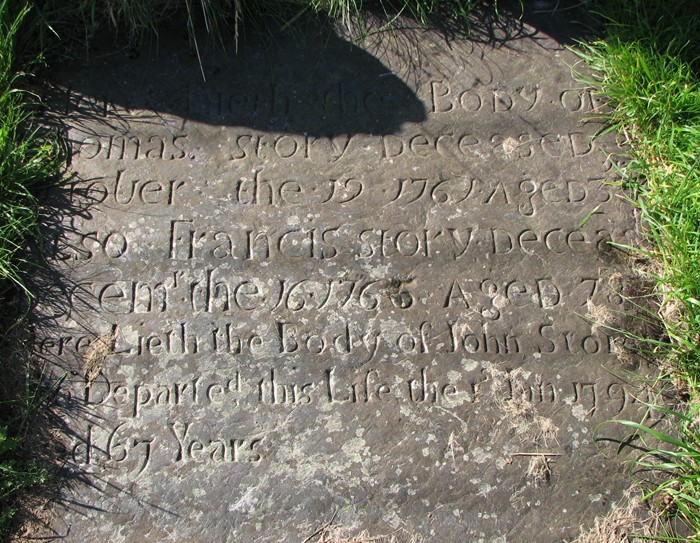 Lieth the Body of
omas story Deceased
tober the 19 1761 Aged 3
lso Francis story Deceas
cemr the 16 1766 Aged 78
ere Lieth the Body of John Stor
Departed this Life the 1st Jan 179
d 67 Years